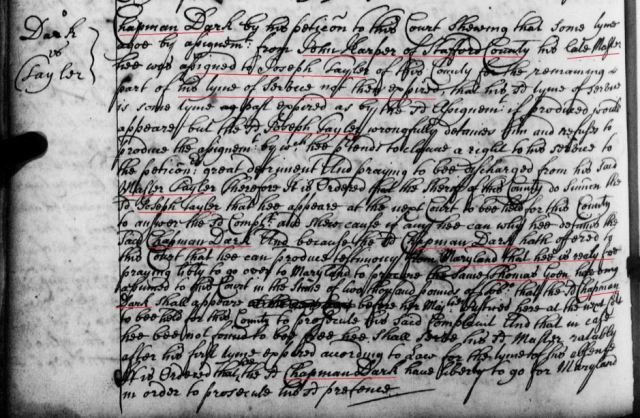 Dark
vs
Tayler
Chapman Dark by his peticon to this Court Shewing that some tyme
agoe by assignemt. from John Harper of Stafford County his late Master
hee was assigned to Joseph Tayler of this County for the remaining
part of his tyme of Service not then expired, that his sd tyme of Service
is some tyme past expired as by the sd Assignemt. if produced would
appeare but the sd Joseph Tayler wrongfully detaines him and refuses to
produce the assignemt. by wch hee p'tends to claime a right to his service to
the peticonrs great detriment And praying to bee discharged from his said
Master Tayler Therefore It is Ordered that the Sherif of this County do Sumon the
sd Joseph Tayler that hee appeare at the next Court to bee held for this County
to answer the sd Complt. and shew cause if any hee can why hee detaines the
said Chapman Dark And because the sd Chapman Dark hath offered to
this Court that hee can produce testimony from Maryland that hee is really free
praying liberty to go over to Maryland to procure the same Thomas
assumed to this Court in the sume of two thousand pounds of tobo. that the sd Chapman
Dark shall appeare before her Matis Justices here at the next Court
to bee held for this County to prosecute his said Complaint And that in case
hee bee not found to bee free hee shall serve his sd Master
after his first tyme expired acording to Law for the tyme of his absence
It is Ordered that the sd Chapman Dark have liberty to go for Maryland
in order to prosecute his sd pretence